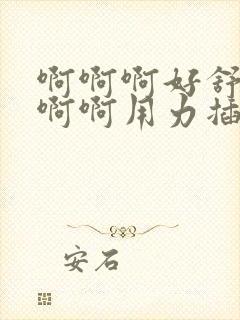 啊啊啊好舒
啊啊用力插
安石